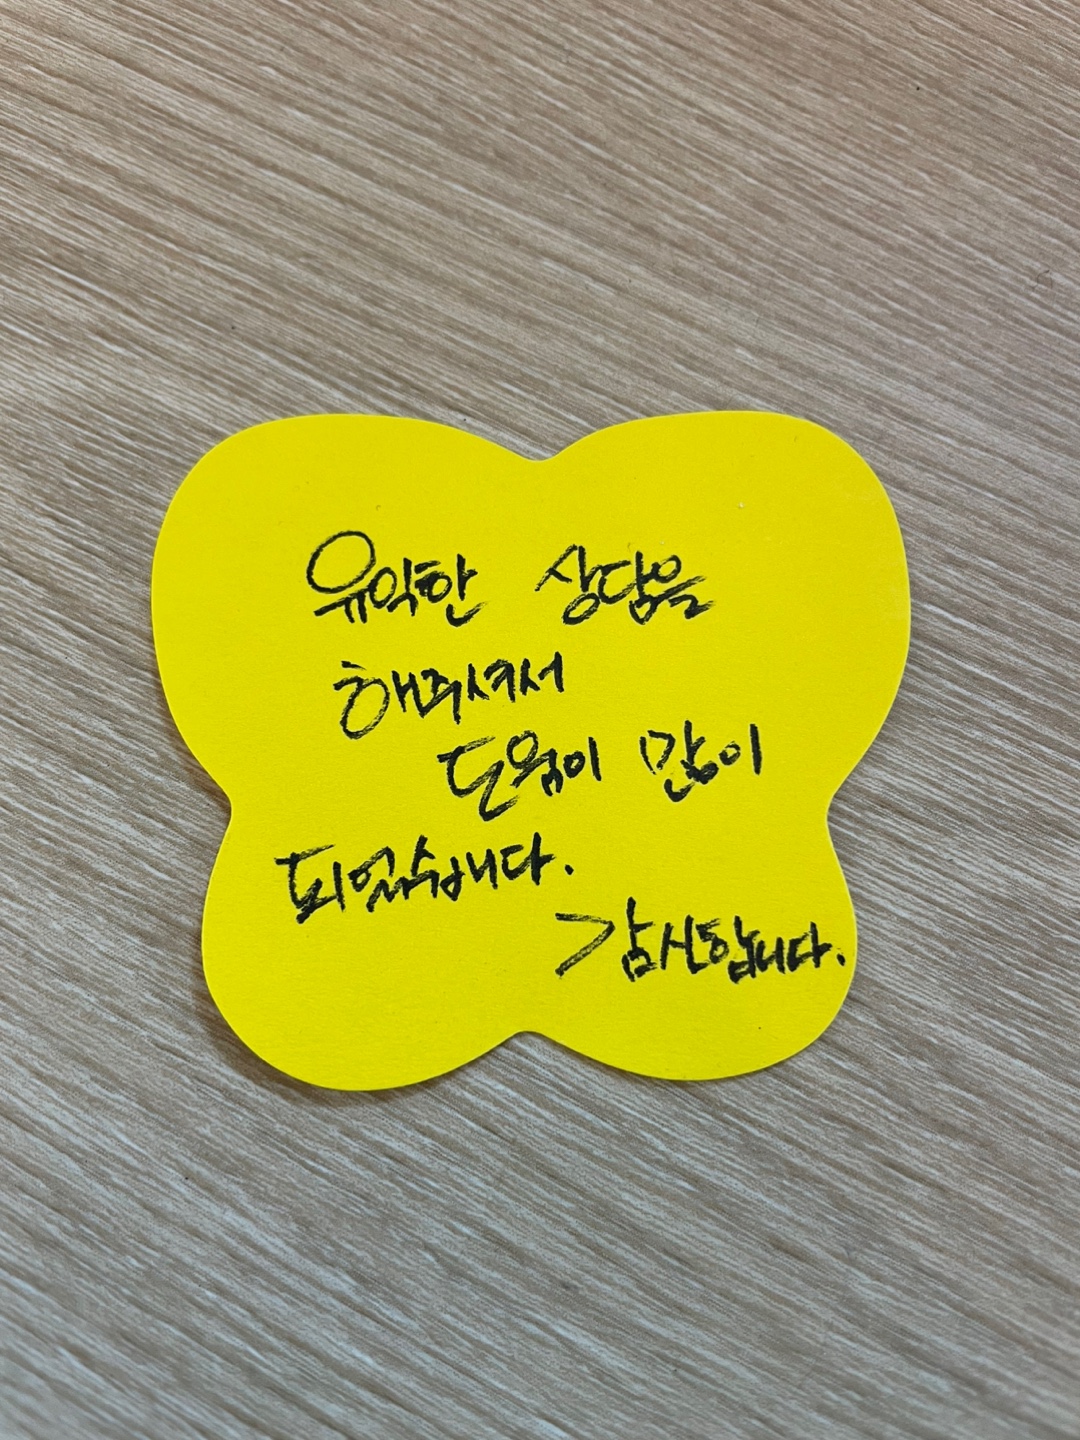 유익한 상담을
해주셔서
도움이 많이
되었습니다.
>감사합니다.